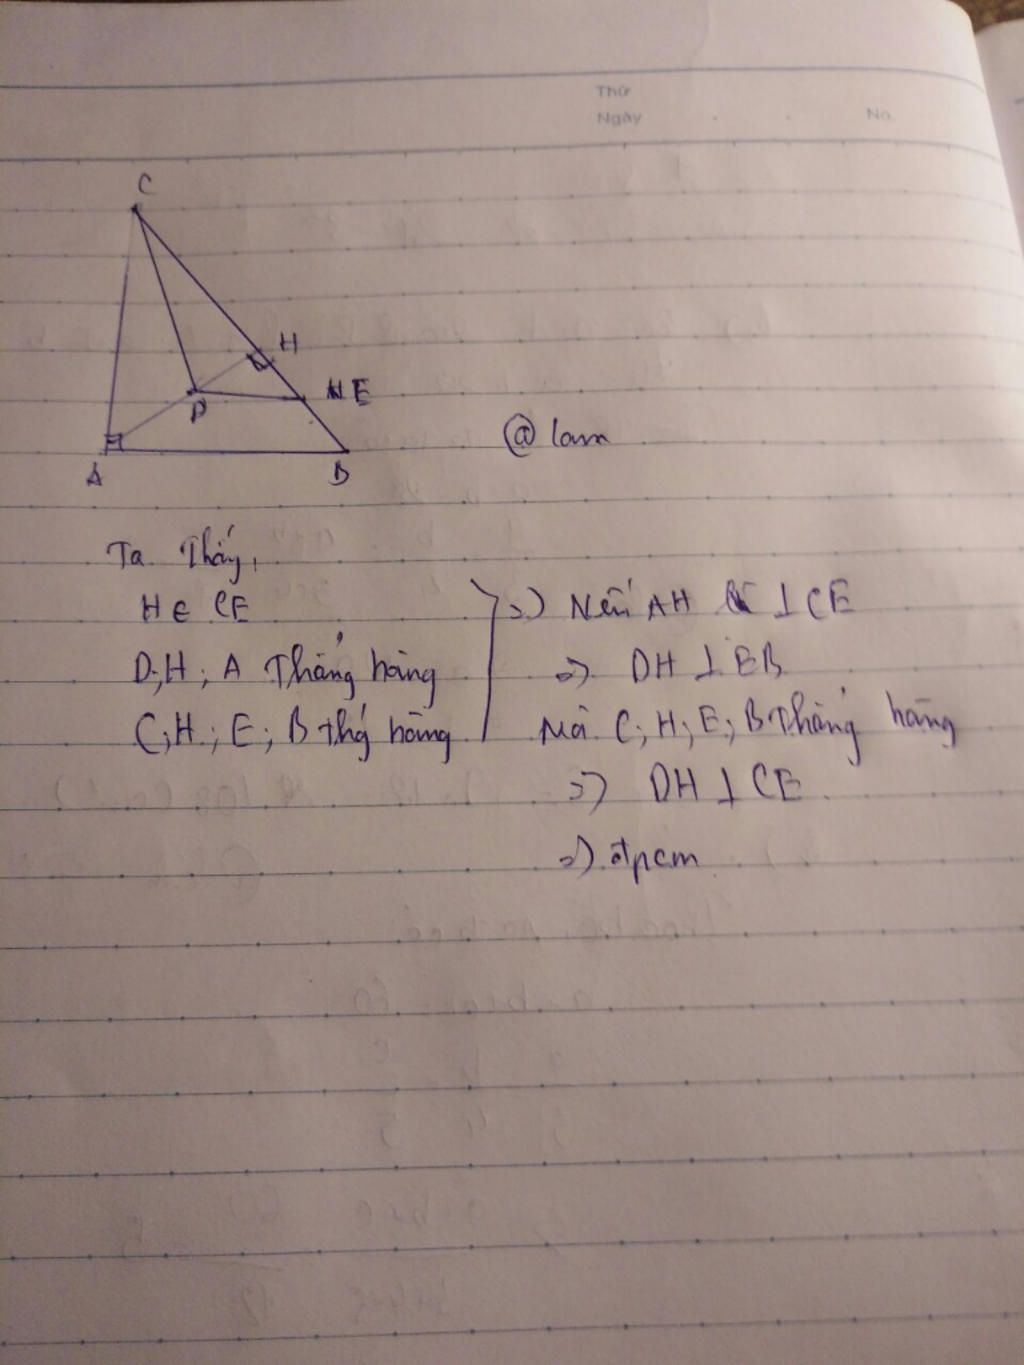 Thứ
Ngày No.
C
H
E
D
A B
@ lam
Ta Thấy,
H ∈ CE
D; H; A Thẳng hàng
C; H; E; B thẳ hàng
=> Nếu AH ⊥ CE
=> DH ⊥ EB
Mà C; H; E; B Thẳng hàng
=> DH ⊥ CE
=> đpcm